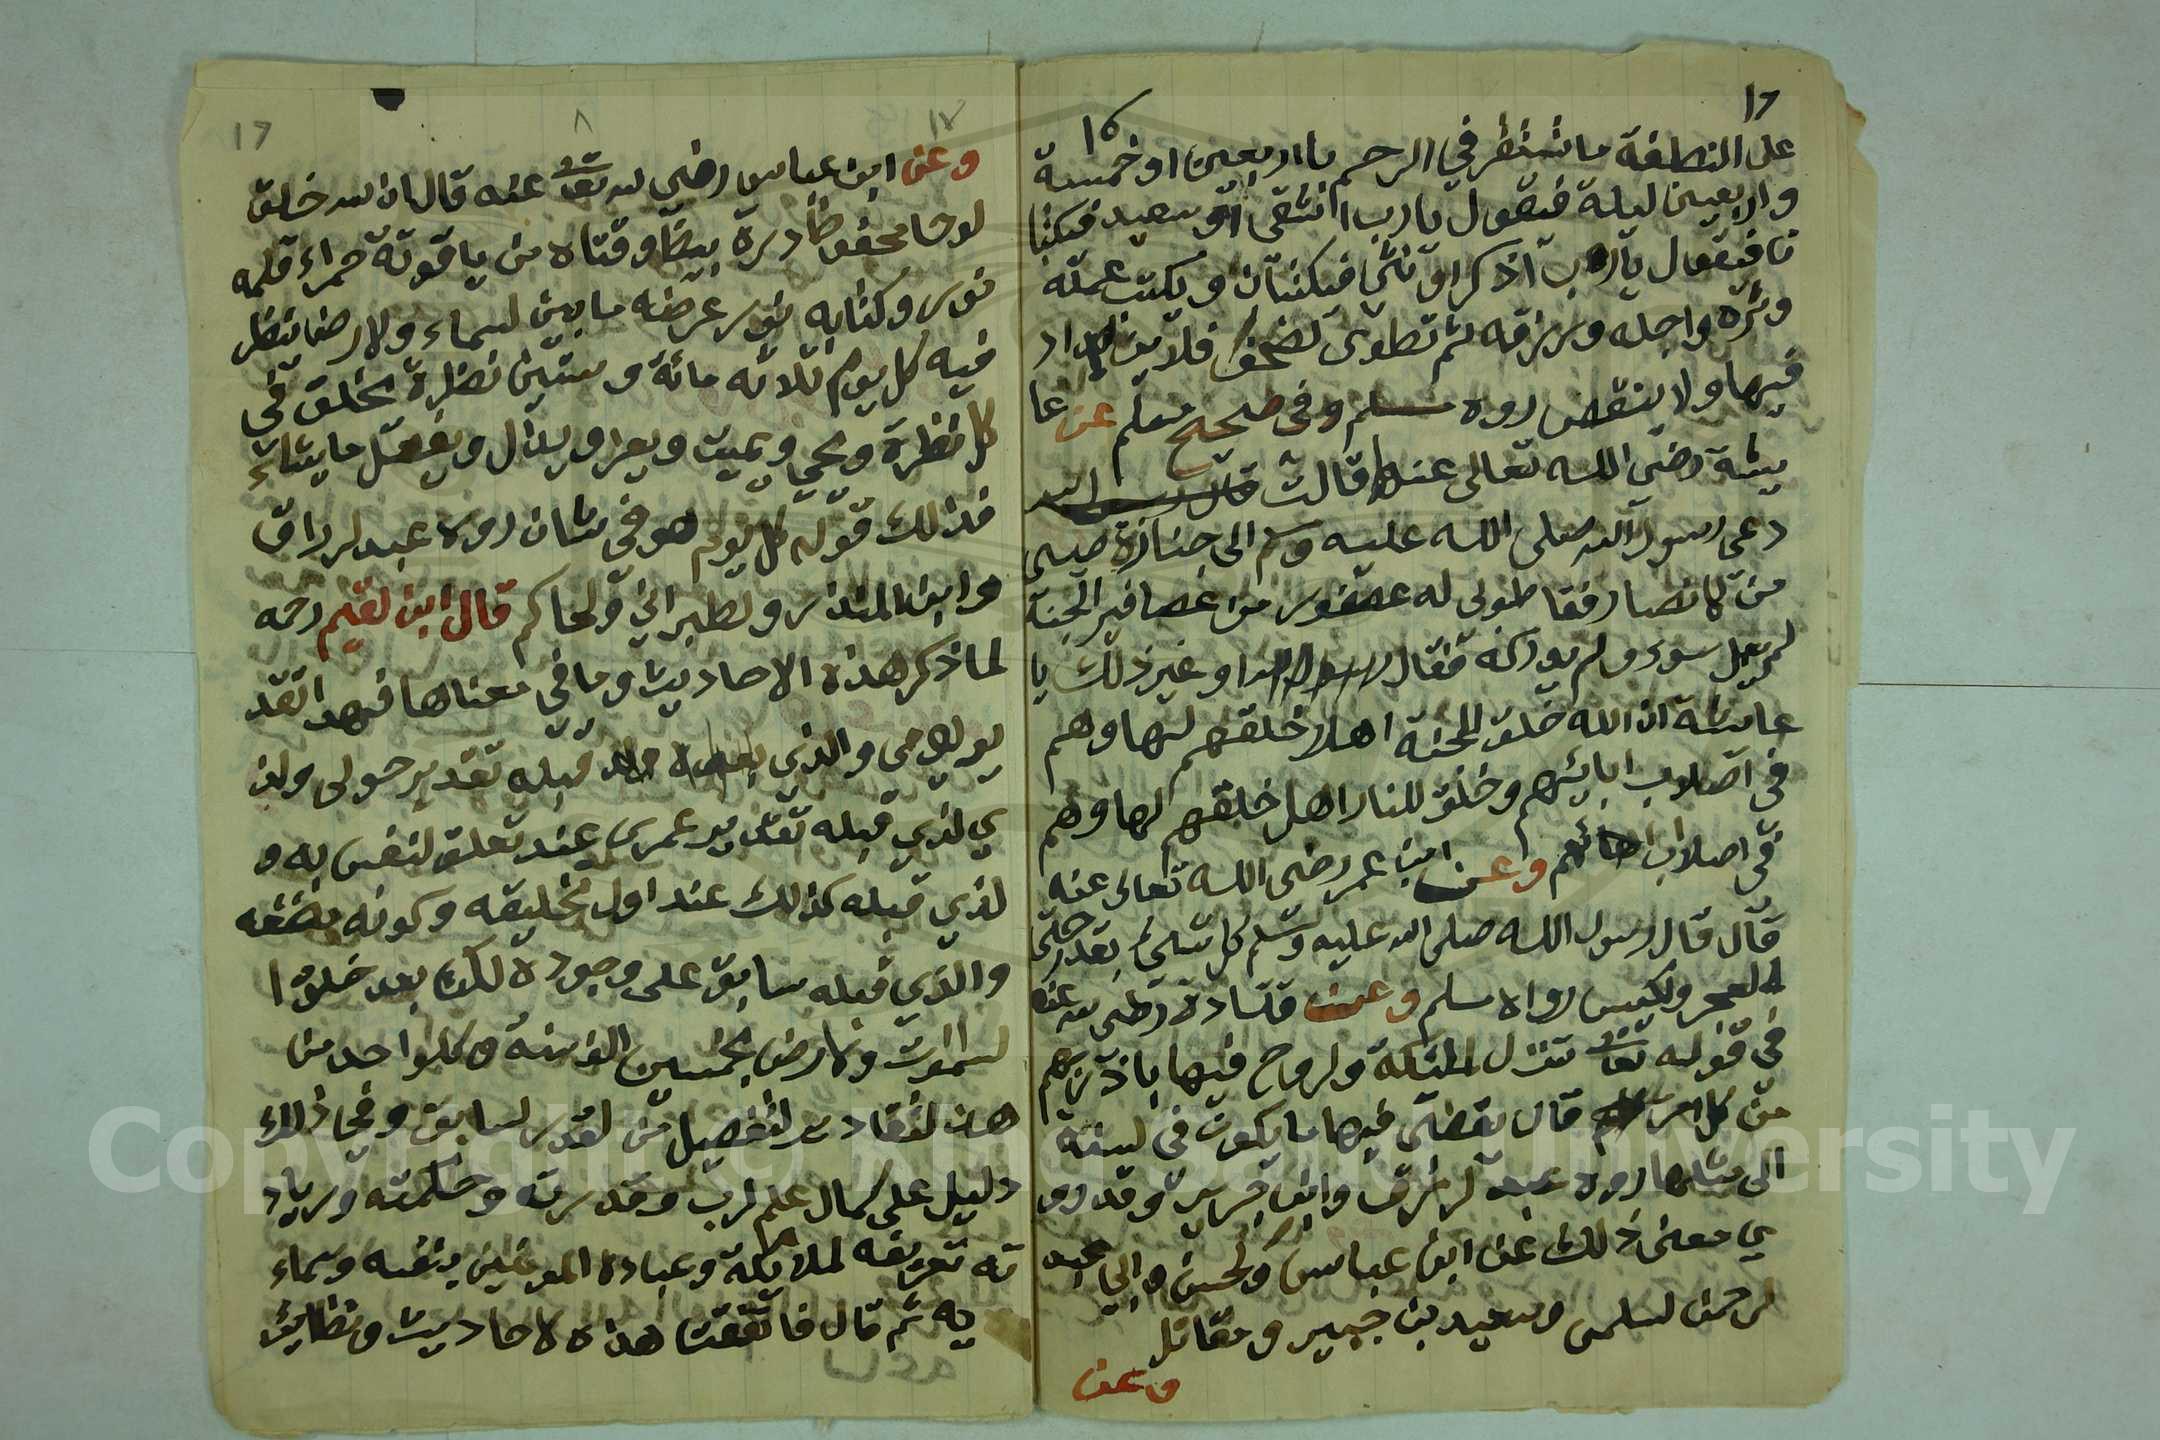 على النطفة ما تستقر في الرحم با اربعين او خمسة
واربعين ليلة فيقول يارب اشقي او سعيد فيكتبا
نا فيقول يارب اذكر او نثي فيكتبان ويكتب عمله
وثره واجله ورزقه ثم تطوى لصحف فلا يزداد
فيها ولا ينقص روه مسلم وفي صحيح مسلم عن عا
يشة رضي الله تعالى عنها قالت
دعي رسول الله صلى الله عليه وسلم الى جنازة صبي
من لانصار فقا طوبى له عصفور من عصافير الجنة
لم يعل سوء ولم يدركه فقال رسول الله او غير ذلك يا
عايشة ان الله خلق للجنة اهلا خلقهم لها وهم
في اصلاب ابائهم وخلق للنار اهل خلقهم لها وهم
في اصلاب ابائهم وعن ابن عمر رضي الله تعالى عنه
قال قال رسول الله صلى الله عليه وسلم كل شئ بقدر حتى
العجز ولكيس رواه مسلم وعن قتادة رضي لله عنه
في قوله تعالى تنزل الملئكة ولروح فيها باذن ربهم
من كل امر قال يقضى فيها ما يكون في لسنة
الى مثلها روه عبد لرزاق وابن جرير وقد رو
ي معنى ذلك عن ابن عباس ولحسن وابي عبد
لرحمن لسلمى وسعيد بن جبير ومقاتل
وعن
وعن ابن عباس رضي لله تعالى عنه قال ان لله خلق
لوحا محفوظا درة بيضا وقتاه من ياقوتة حمراء قلمه
نور وكتابه نور عرضه ما بين لسماء ولارض ينظر
فيه كل يوم ثلاثه مائة وستين نظرة يخلق في
كل نظرة ويحي ويميت ويعز ويذل ويفعل ما يشاء
فذلك قوله كل يوم هو في شان روه عبد لرزاق
وابن المنذر ولطبراني ولحاكم قال ابن لقيم رحمه
لما ذكر هذه الاحاديث وما في معناها فهدا تقد
ير ليومي والذي قبله تقدير حولى ولذ
ي لذي قبله تقدير عمري عند تعلق لنفس به و
لذي قبله كذلك عند اول تخليقه وكونه مضغه
والذي قبله سابق على وجوده لكن بعد خلق ا
لسموت ولارض بخمسين الف سنة وكلوا حد من
هذه لتقادير لتفصيل من لقدر لسابق وفي ذلك
دليل على كمال علم لرب وقدرته وحكمته وزياد
ته تعريفه لملائكة وعباده المومنين بنفسه وسماء
يه ثم قال فاتفقت هذه لاحاديث ونظاير